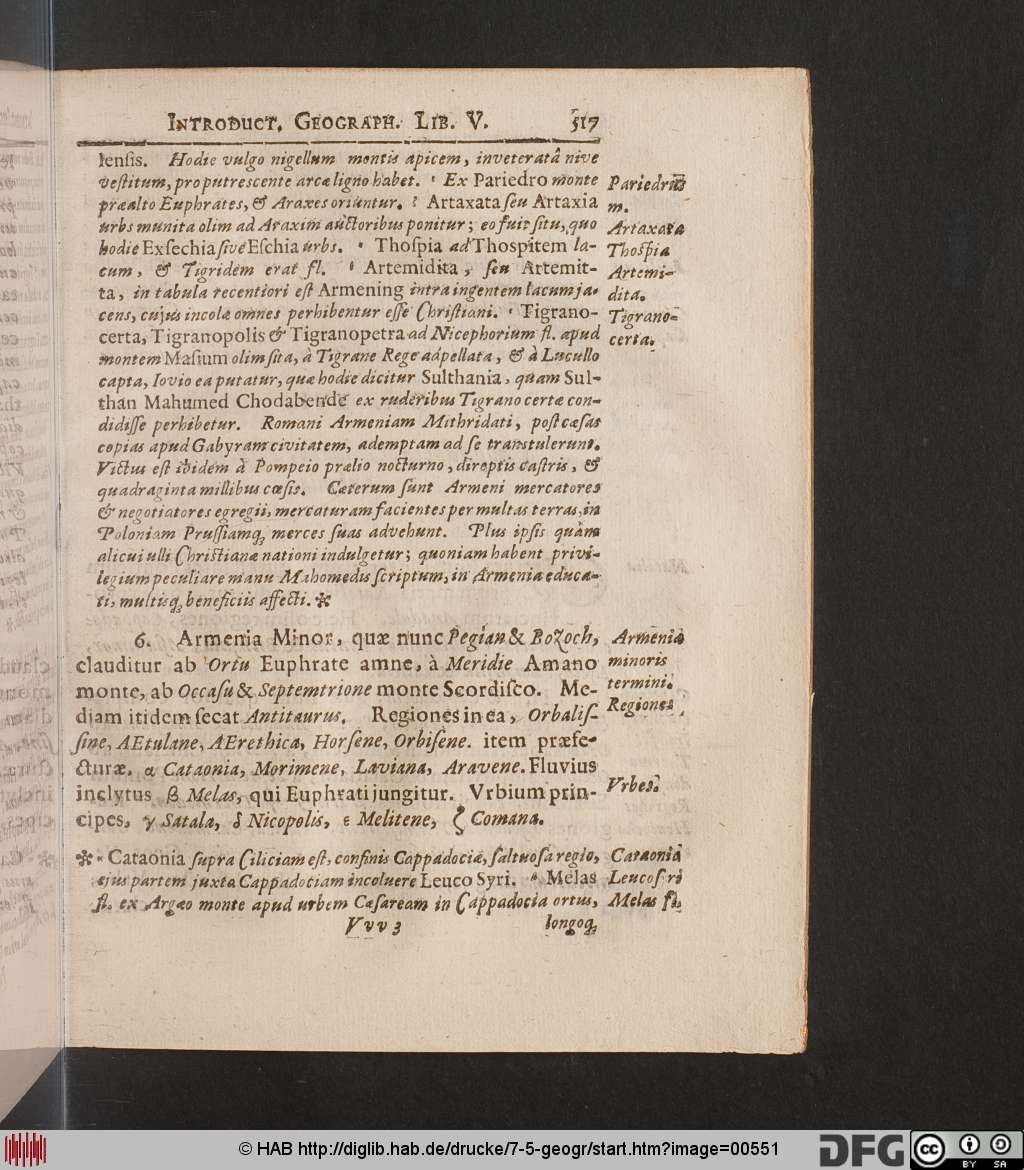 INTRODUCT. GEOGRAPH. LIB. V. 517
lensis. Hodie vulgo nigellum montis apicem, inveteratâ nive
vestitum, pro putrescente arcæ ligno habet. Ex Pariedro monte
præalto Euphrates, & Araxes oriuntur. Artaxata seu Artaxia
urbs munita olim ad Araxim auctoribus ponitur; eo fuit situ, quo
hodie Exsechia sive Eschia urbs. Thospia ad Thospitem la-
cum, & Tigridem erat fl. Artemidita, seu Artemit-
ta, in tabula recentiori est Armening intra ingentem lacum ja-
cens, cujus incolæ omnes perhibentur esse Christiani. Tigrano-
certa, Tigranopolis & Tigranopetra ad Nicephorium fl. apud
montem Masium olim sita, à Tigrane Rege adpellata, & à Lucullo
capta, Iovio ea putatur, quæ hodie dicitur Sulthania, quam Sul-
than Mahumed Chodabende ex ruderibus Tigrano certæ con-
didisse perhibetur. Romani Armeniam Mithridati, post cæsas
copias apud Gabyram civitatem, ademptam ad se transtulerunt.
Victus est ibidem à Pompeio prælio nocturno, direptis castris, &
quadraginta millibus cæsis. Cæterum sunt Armeni mercatores
& negotiatores egregii, mercaturam facientes per multas terras, in
Poloniam Prussiamq; merces suas advehunt. Plus ipsis quàm
alicui ulli Christianæ nationi indulgetur; quoniam habent privi-
legium peculiare manu Mahomedis scriptum, in Armenia educa-
ti, multisq; beneficiis affecti. *
Pariedrus
m.
Artaxata
Thospia
Artemi-
dita.
Tigrano-
certa.
6. Armenia Minor, quæ nunc Pegian & Bozoch,
clauditur ab Ortu Euphrate amne, à Meridie Amano
monte, ab Occasu & Septemtrione monte Scordisco. Me-
diam itidem secat Antitaurus. Regiones in ea, Orbalis-
sine, AEtulane, AErethica, Horsene, Orbisene. item præfe-
cturæ, α Cataonia, Morimene, Laviana, Aravene. Fluvius
inclytus β Melas, qui Euphrati jungitur. Vrbium prin-
cipes, γ Satala, δ Nicopolis, ε Melitene, ζ Comana.
Armeniæ
minoris
termini.
Regiones
Vrbes.
* α Cataonia supra Ciliciam est, confinis Cappadociæ, saltuosa regio,
ejus partem juxta Cappadotiam incoluere Leuco Syri. β Melas
fl. ex Argæo monte apud urbem Cæsaream in Cappadocia ortus,
Cataonia
Leucosyri
Melas fl.
Vvv 3 longoq;
© HAB http://diglib.hab.de/drucke/7-5-geogr/start.htm?image=00551
DFG
cc
BY SA